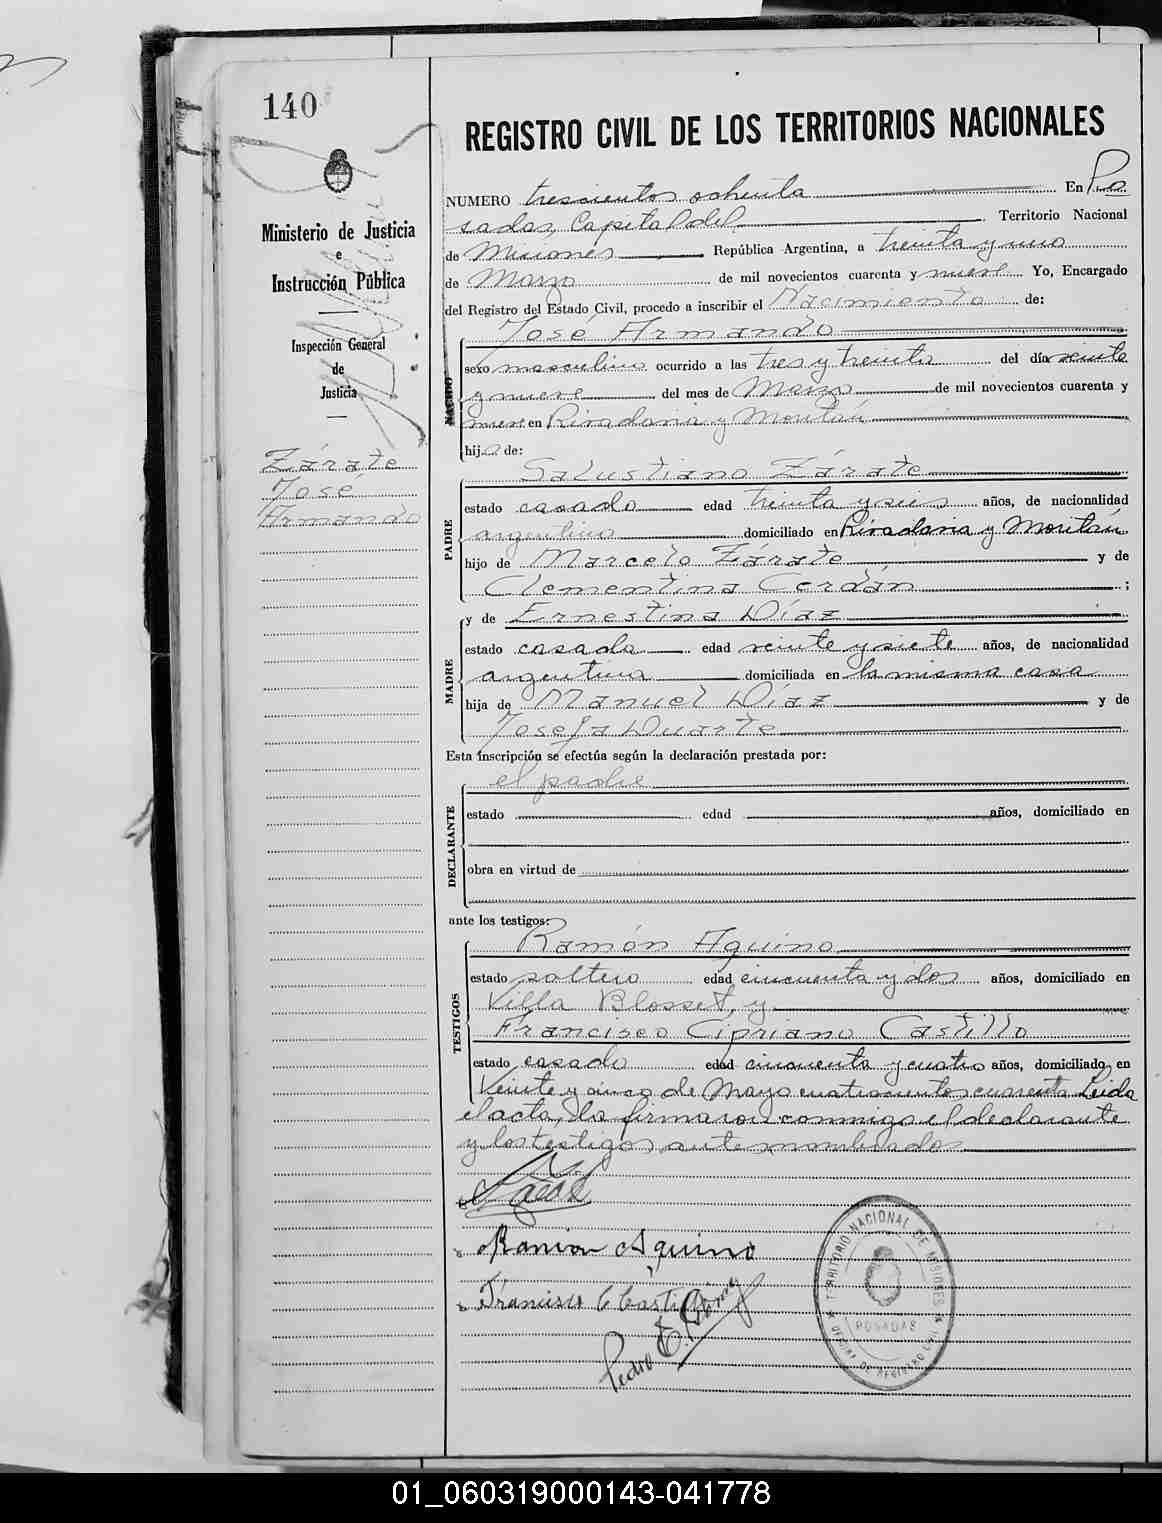 140
REGISTRO CIVIL DE LOS TERRITORIOS NACIONALES
Ministerio de Justicia
e
Instrucción Pública
Inspección General
de
Justicia
Zárate
José
Armando
NUMERO trescientos ochenta En Po
sadas, Capital del Territorio Nacional
de Misiones República Argentina, a treinta y uno
de Marzo de mil novecientos cuarenta y nueve Yo, Encargado
del Registro del Estado Civil, procedo a inscribir el Nacimiento de:
José Armando
NACIDO
sexo masculino ocurrido a las tres y treinta del día veinte
y nueve del mes de Marzo de mil novecientos cuarenta y
nueve en Rivadavia y Moritán
hijo de:
Salustiano Zárate
PADRE
estado casado edad treinta y seis años, de nacionalidad
argentino domiciliado en Rivadavia y Moritán
hijo de Marcelo Zárate y de
Clementina Cerdán ;
y de Ernestina Díaz
MADRE
estado casada edad veinte y siete años, de nacionalidad
argentina domiciliada en la misma casa
hija de Manuel Díaz y de
Josefa Duarte
Esta inscripción se efectúa según la declaración prestada por:
el padre
DECLARANTE
estado edad años, domiciliado en
obra en virtud de
ante los testigos:
Ramón Aquino
TESTIGOS
estado soltero edad cincuenta y dos años, domiciliado en
Villa Blosset, y
Francisco Cipriano Castillo
estado casado edad cincuenta y cuatro años, domiciliado en
Veinte y cinco de Mayo cuatrocientos cuarenta Leida
el acta, la firmaron conmigo el declarante
y los testigos ante nombrados
Ramon Aquino
Francisco C Castillo
Pedro E.
TERRITORIO NACIONAL DE MISIONES
POSADAS
OFICINA DE REGISTRO CIVIL
01_060319000143-041778